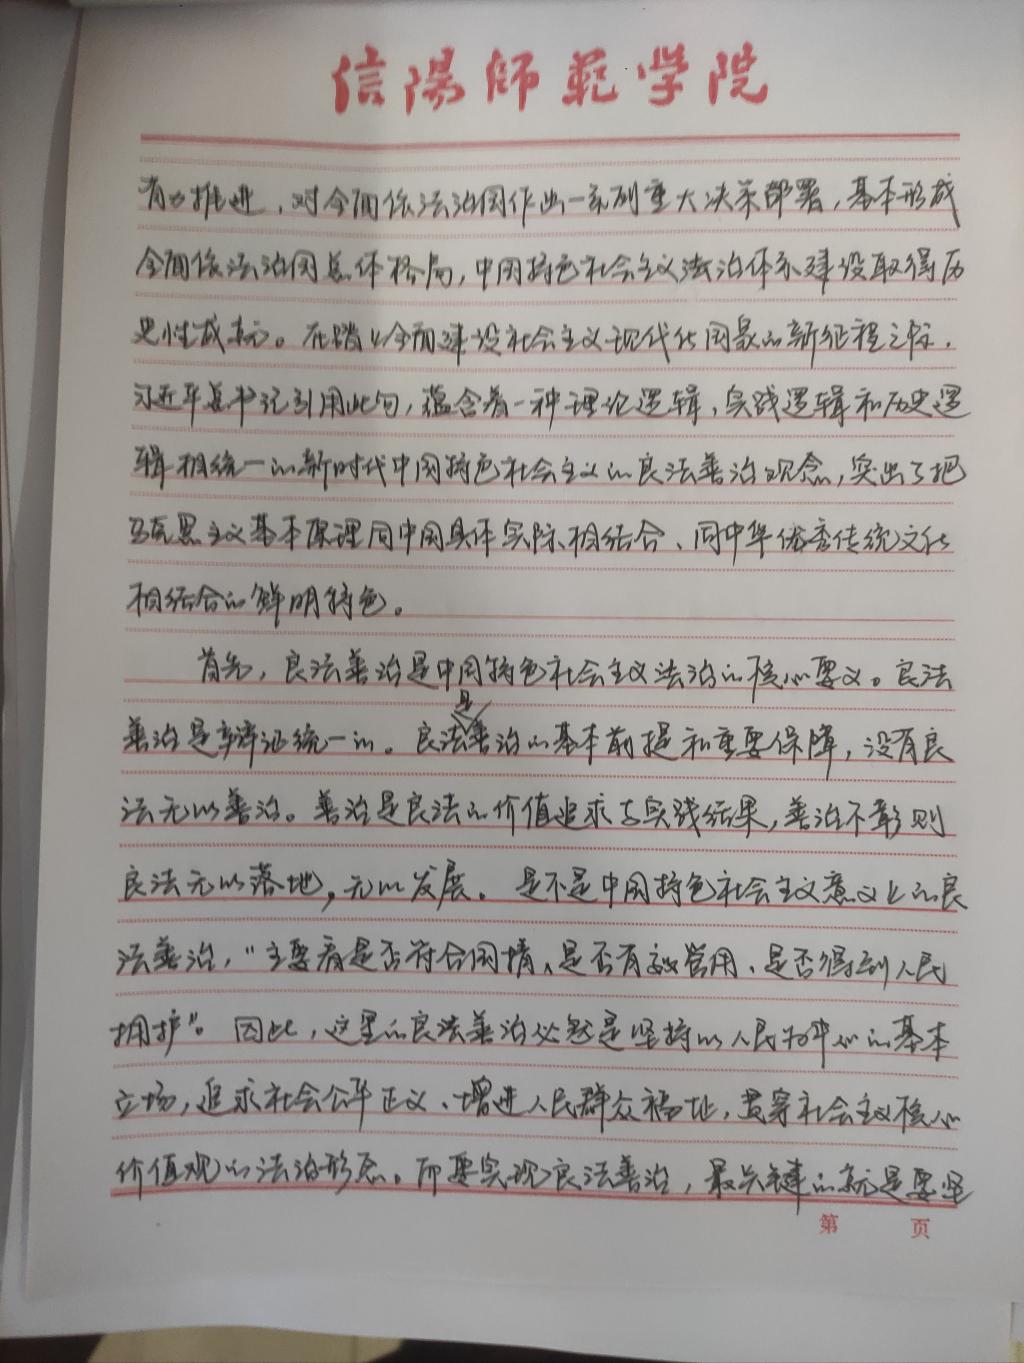 信陽師範学院
有力推进，对全面依法治国作出一系列重大决策部署，基本形成
全面依法治国总体格局，中国特色社会主义法治体系建设取得历
史性成就。在踏上全面建设社会主义现代化国家的新征程之际，
习近平总书记引用此句，蕴含着一种理论逻辑，实践逻辑和历史逻
辑相统一的新时代中国特色社会主义的良法善治观念，突出了把
马克思主义基本原理同中国具体实际相结合、同中华优秀传统文化
相结合的鲜明特色。
首先，良法善治是中国特色社会主义法治的核心要义。良法
善治是辩证统一的。良法是善治的基本前提和重要保障，没有良
法无以善治。善治是良法的价值追求与实践结果，善治不彰则
良法无以落地，无以发展。是不是中国特色社会主义意义上的良
法善治，“主要看是否符合国情、是否有效管用、是否得到人民
拥护”。因此，这里的良法善治必然是坚持以人民为中心的基本
立场，追求社会公平正义、增进人民群众福祉，贯穿社会主义核心
价值观的法治形态。而要实现良法善治，最关键的就是要坚
第 页